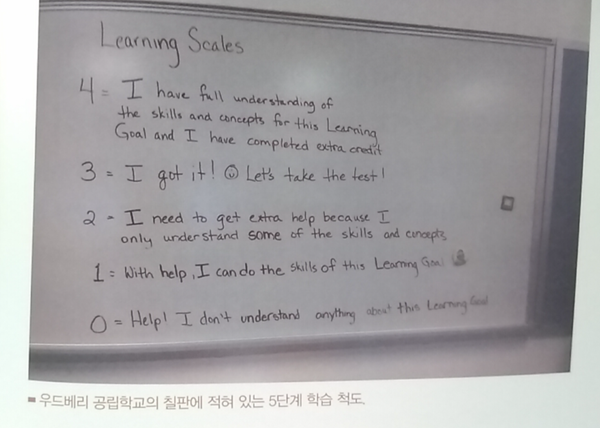 Learning Scales
4 = I have full understanding of
the skills and concepts for this Learning
Goal and I have completed extra credit
3 = I got it! ☺ Let's take the test!
2 = I need to get extra help because I
only understand some of the skills and concepts
1 = With help, I can do the skills of this Learning Goal
0 = Help! I don't understand anything about this Learning Goal
우드베리 공립학교의 칠판에 적혀 있는 5단계 학습 척도.